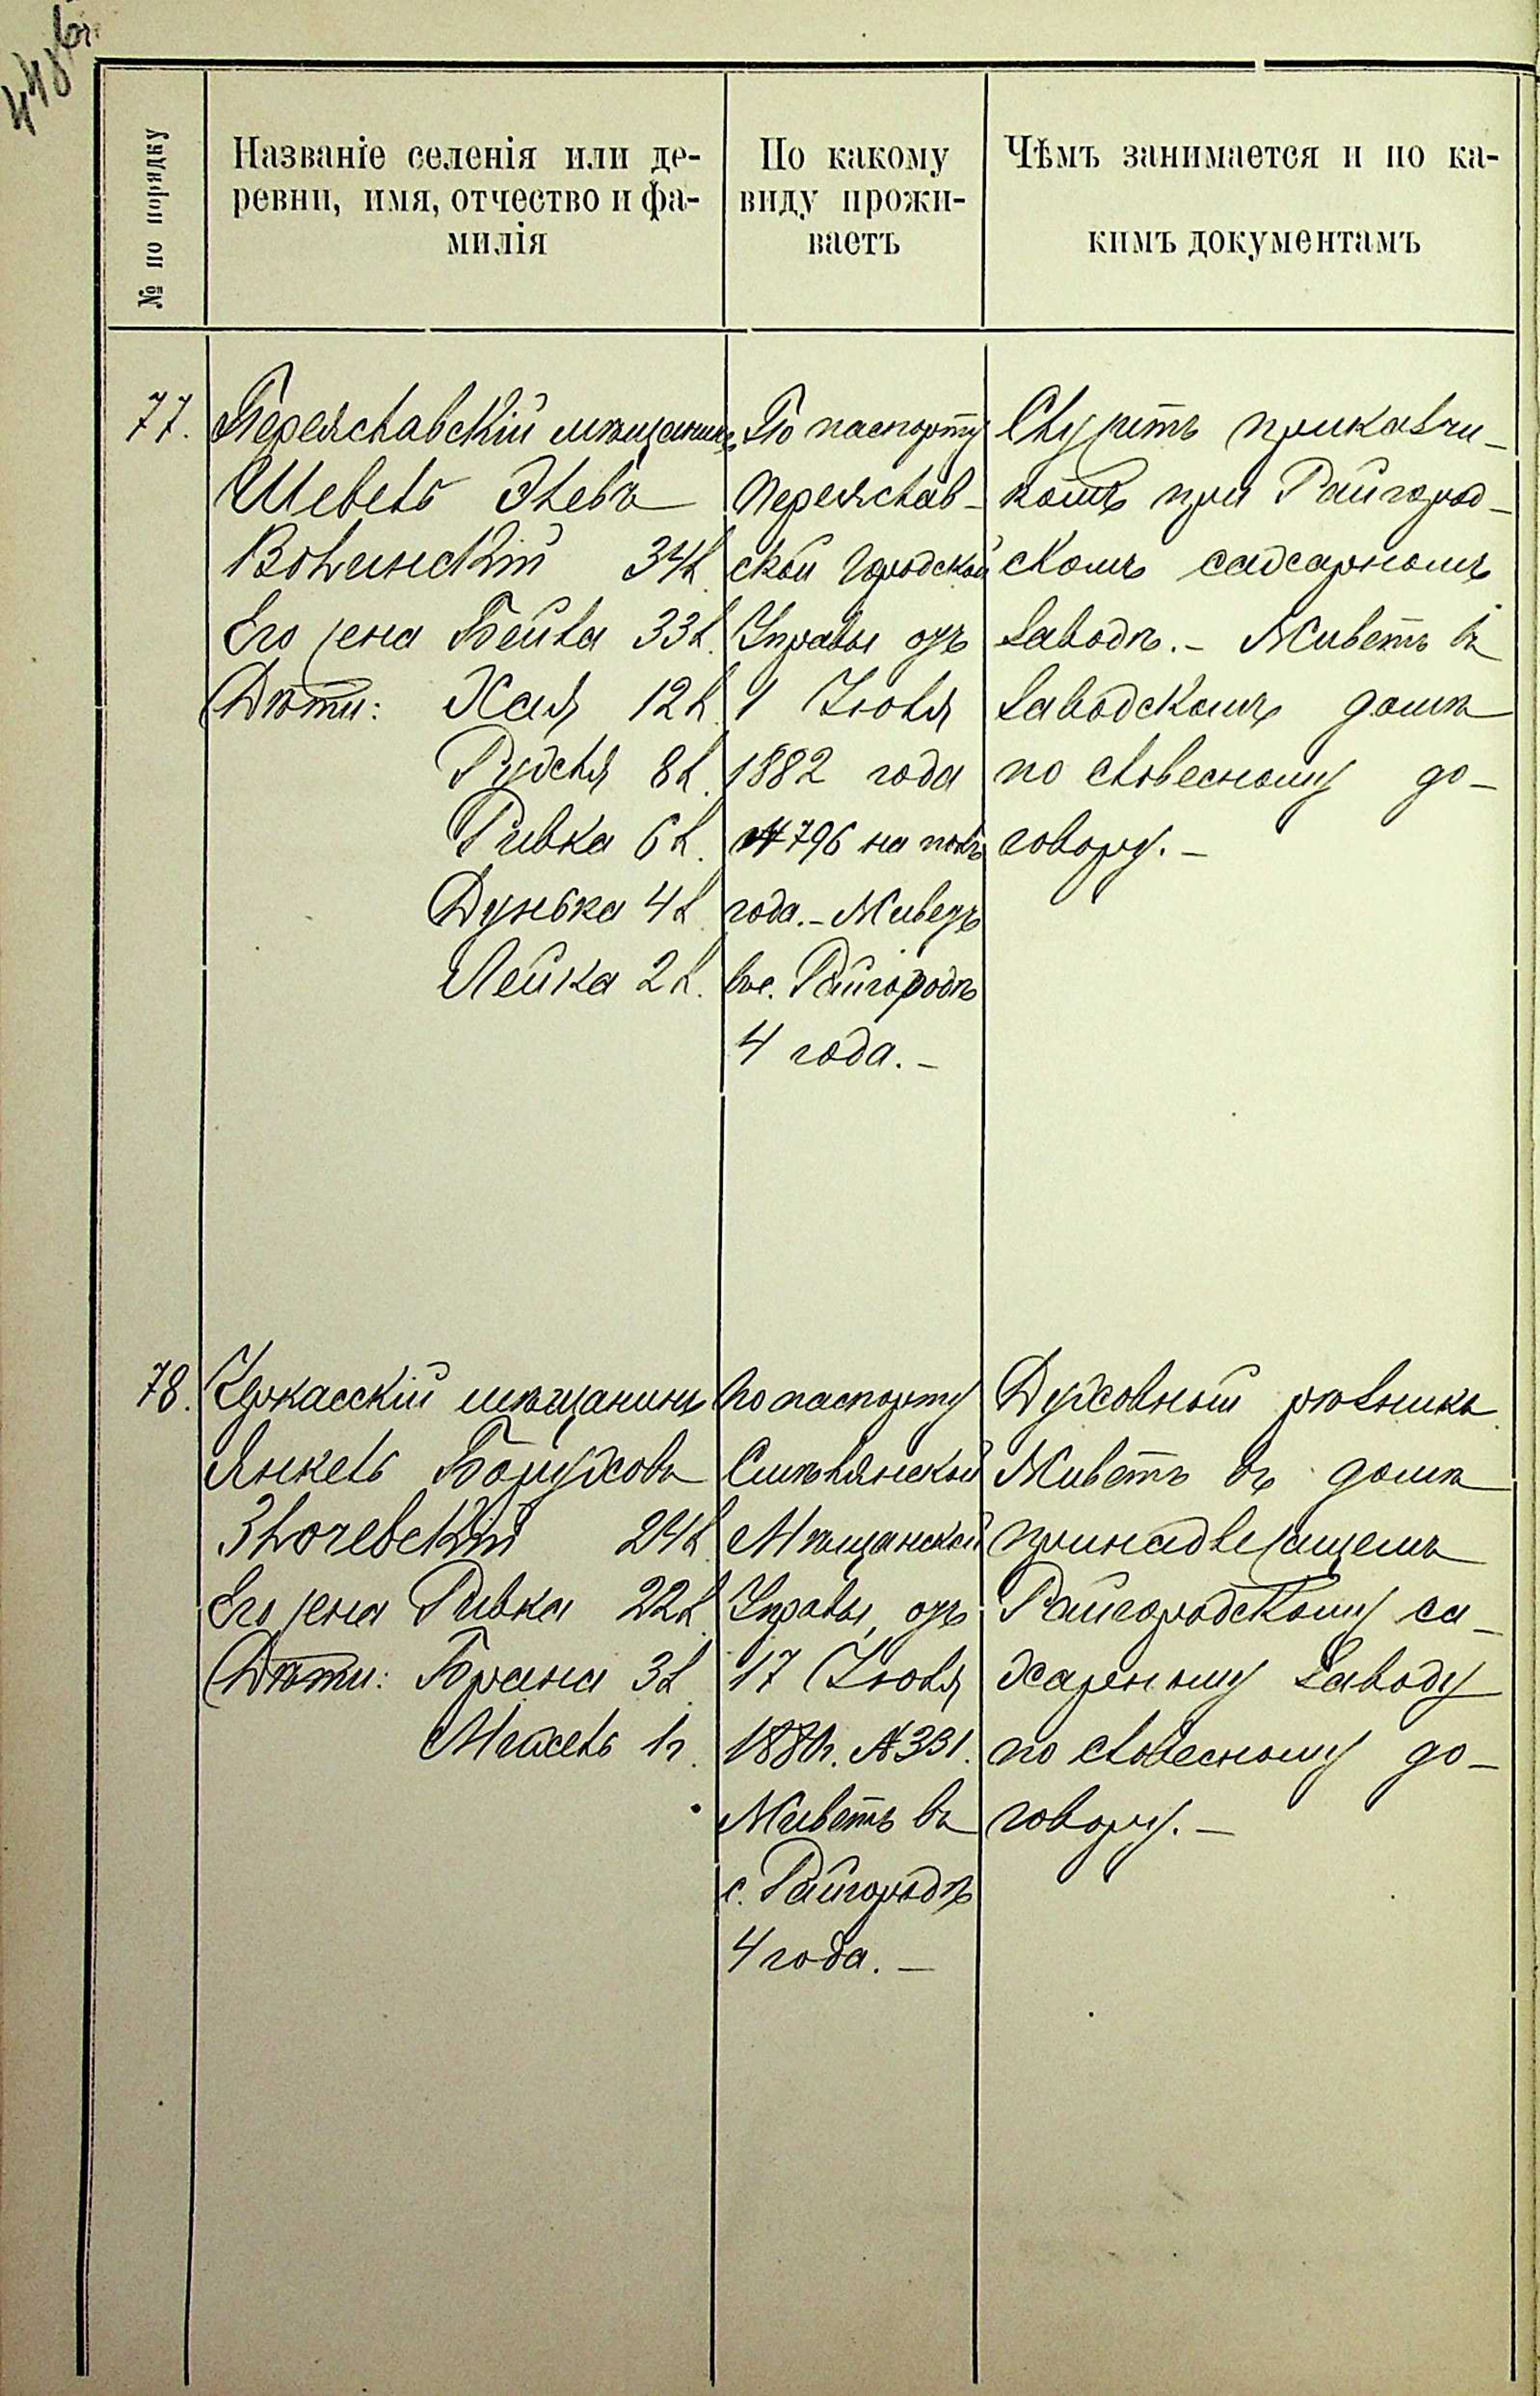 448об.
№ по порядку
Названіе селенія или де-
ревни, имя, отчество и фа-
милія
По какому
виду прожи-
ваетъ
Чѣмъ занимается и по ка-
кимъ документамъ
77.
Переяславскій мѣщанинъ
Шевель Элевъ
Волынскій 34 л.
Его жена Бейла 33 л.
Дѣти: Хая 12 л.
Рухля 8 л.
Ривка 6 л.
Дунька 4 л.
Лейка 2 л.
По паспорту
Переяслав-
ской Городской
Управы отъ
1 Іюля
1882 года
№ 796 на полъ
года.- Живетъ
въ с. Райгородѣ
4 года.-
Служитъ приказчи-
комъ при Райгород-
скомъ сахарномъ
заводѣ.- Живетъ въ
заводскомъ домѣ
по словесному до-
говору.-
78.
Черкасскій мѣщанинъ
Янкель Боруховъ
Злочевскій 24 л.
Его жена Ривка 22 л.
Дѣти: Брана 3 л.
Мехель 1 г.
По паспорту
Смѣлянской
Мѣщанской
Управы, отъ
17 Іюля
188 г. № 331.
Живетъ въ
с. Райгородѣ
4 года.-
Духовный рѣзникъ
Живетъ въ домѣ
принадлежащемъ
Райгородскому са-
харному заводу
по словесному до-
говору.-